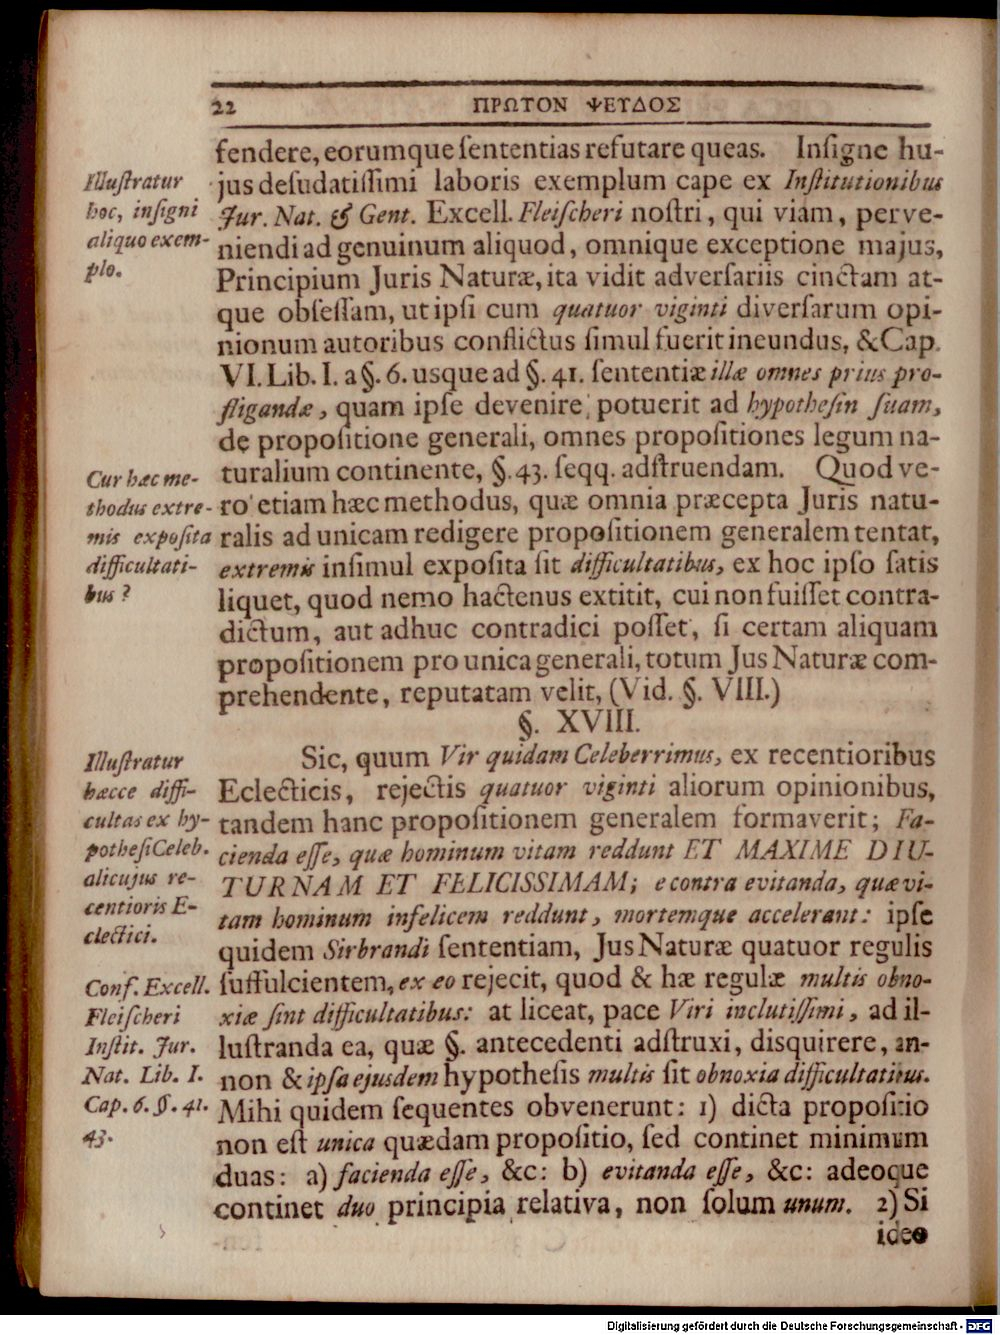 22 ΠΡΩΤΟΝ ΨΕΥΔΟΣ
fendere, eorumque ſententias refutare queas. Inſigne hu-
jus deſudatiſſimi laboris exemplum cape ex Inſtitutionibus
Jur. Nat. & Gent. Excell. Fleiſcheri noſtri, qui viam, perve-
niendi ad genuinum aliquod, omnique exceptione majus,
Principium Juris Naturæ, ita vidit adverſariis cinctam at-
que obſeſſam, ut ipſi cum quatuor viginti diverſarum opi-
nionum autoribus conflictus ſimul fuerit ineundus, & Cap.
VI. Lib. I. a §. 6. usque ad §. 41. ſententiæ illæ omnes prius pro-
fligandæ, quam ipſe devenire potuerit ad hypotheſin ſuam,
de propoſitione generali, omnes propoſitiones legum na-
turalium continente, §. 43. ſeqq. adſtruendam. Quod ve-
ro etiam hæc methodus, quæ omnia præcepta Juris natu-
ralis ad unicam redigere propoſitionem generalem tentat,
extremis inſimul expoſita ſit difficultatibus, ex hoc ipſo ſatis
liquet, quod nemo hactenus extitit, cui non fuiſſet contra-
dictum, aut adhuc contradici poſſet, ſi certam aliquam
propoſitionem pro unica generali, totum Jus Naturæ com-
prehendente, reputatam velit, (Vid. §. VIII.)
Illuſtratur
hoc, inſigni
aliquo exem-
plo.
Cur hæc me-
thodus extre-
mis expoſita
difficultati-
bus?
§. XVIII.
Sic, quum Vir quidam Celeberrimus, ex recentioribus
Eclecticis, rejectis quatuor viginti aliorum opinionibus,
tandem hanc propoſitionem generalem formaverit; Fa-
cienda eſſe, quæ hominum vitam reddunt ET MAXIME DIU-
TURNAM ET FELICISSIMAM; e contra evitanda, quæ vi-
tam hominum infelicem reddunt, mortemque accelerant: ipſe
quidem Sirbrandi ſententiam, Jus Naturæ quatuor regulis
ſuffulcientem, ex eo rejecit, quod & hæ regulæ multis obno-
xiæ ſint difficultatibus: at liceat, pace Viri inclutiſſimi, ad il-
luſtranda ea, quæ §. antecedenti adſtruxi, disquirere, an-
non & ipſa ejusdem hypotheſis multis ſit obnoxia difficultatibus.
Mihi quidem ſequentes obvenerunt: 1) dicta propoſitio
non eſt unica quædam propoſitio, ſed continet minimum
duas: a) facienda eſſe, &c: b) evitanda eſſe, &c: adeoque
continet duo principia relativa, non ſolum unum. 2) Si
ideo
Illuſtratur
hæcce diffi-
cultas ex hy-
potheſi Celeb.
alicujus re-
centioris E-
clectici.
Conf. Excell.
Fleiſcheri
Inſtit. Jur.
Nat. Lib. I.
Cap. 6. §. 41.
43.
Digitalisierung gefördert durch die Deutsche Forschungsgemeinschaft - DFG